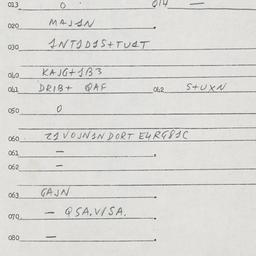 013 0 014 —
020 MAJ1N
030 1NT1D1S+TU1T
040 KAJG+1B3
041 DRIB+ QAF 042 S+UXN
050 0
060 21VOJN1NDORT E4RG81C
061 —
062 —
063 GAJN
070 — QSA.V/SA.
080 —